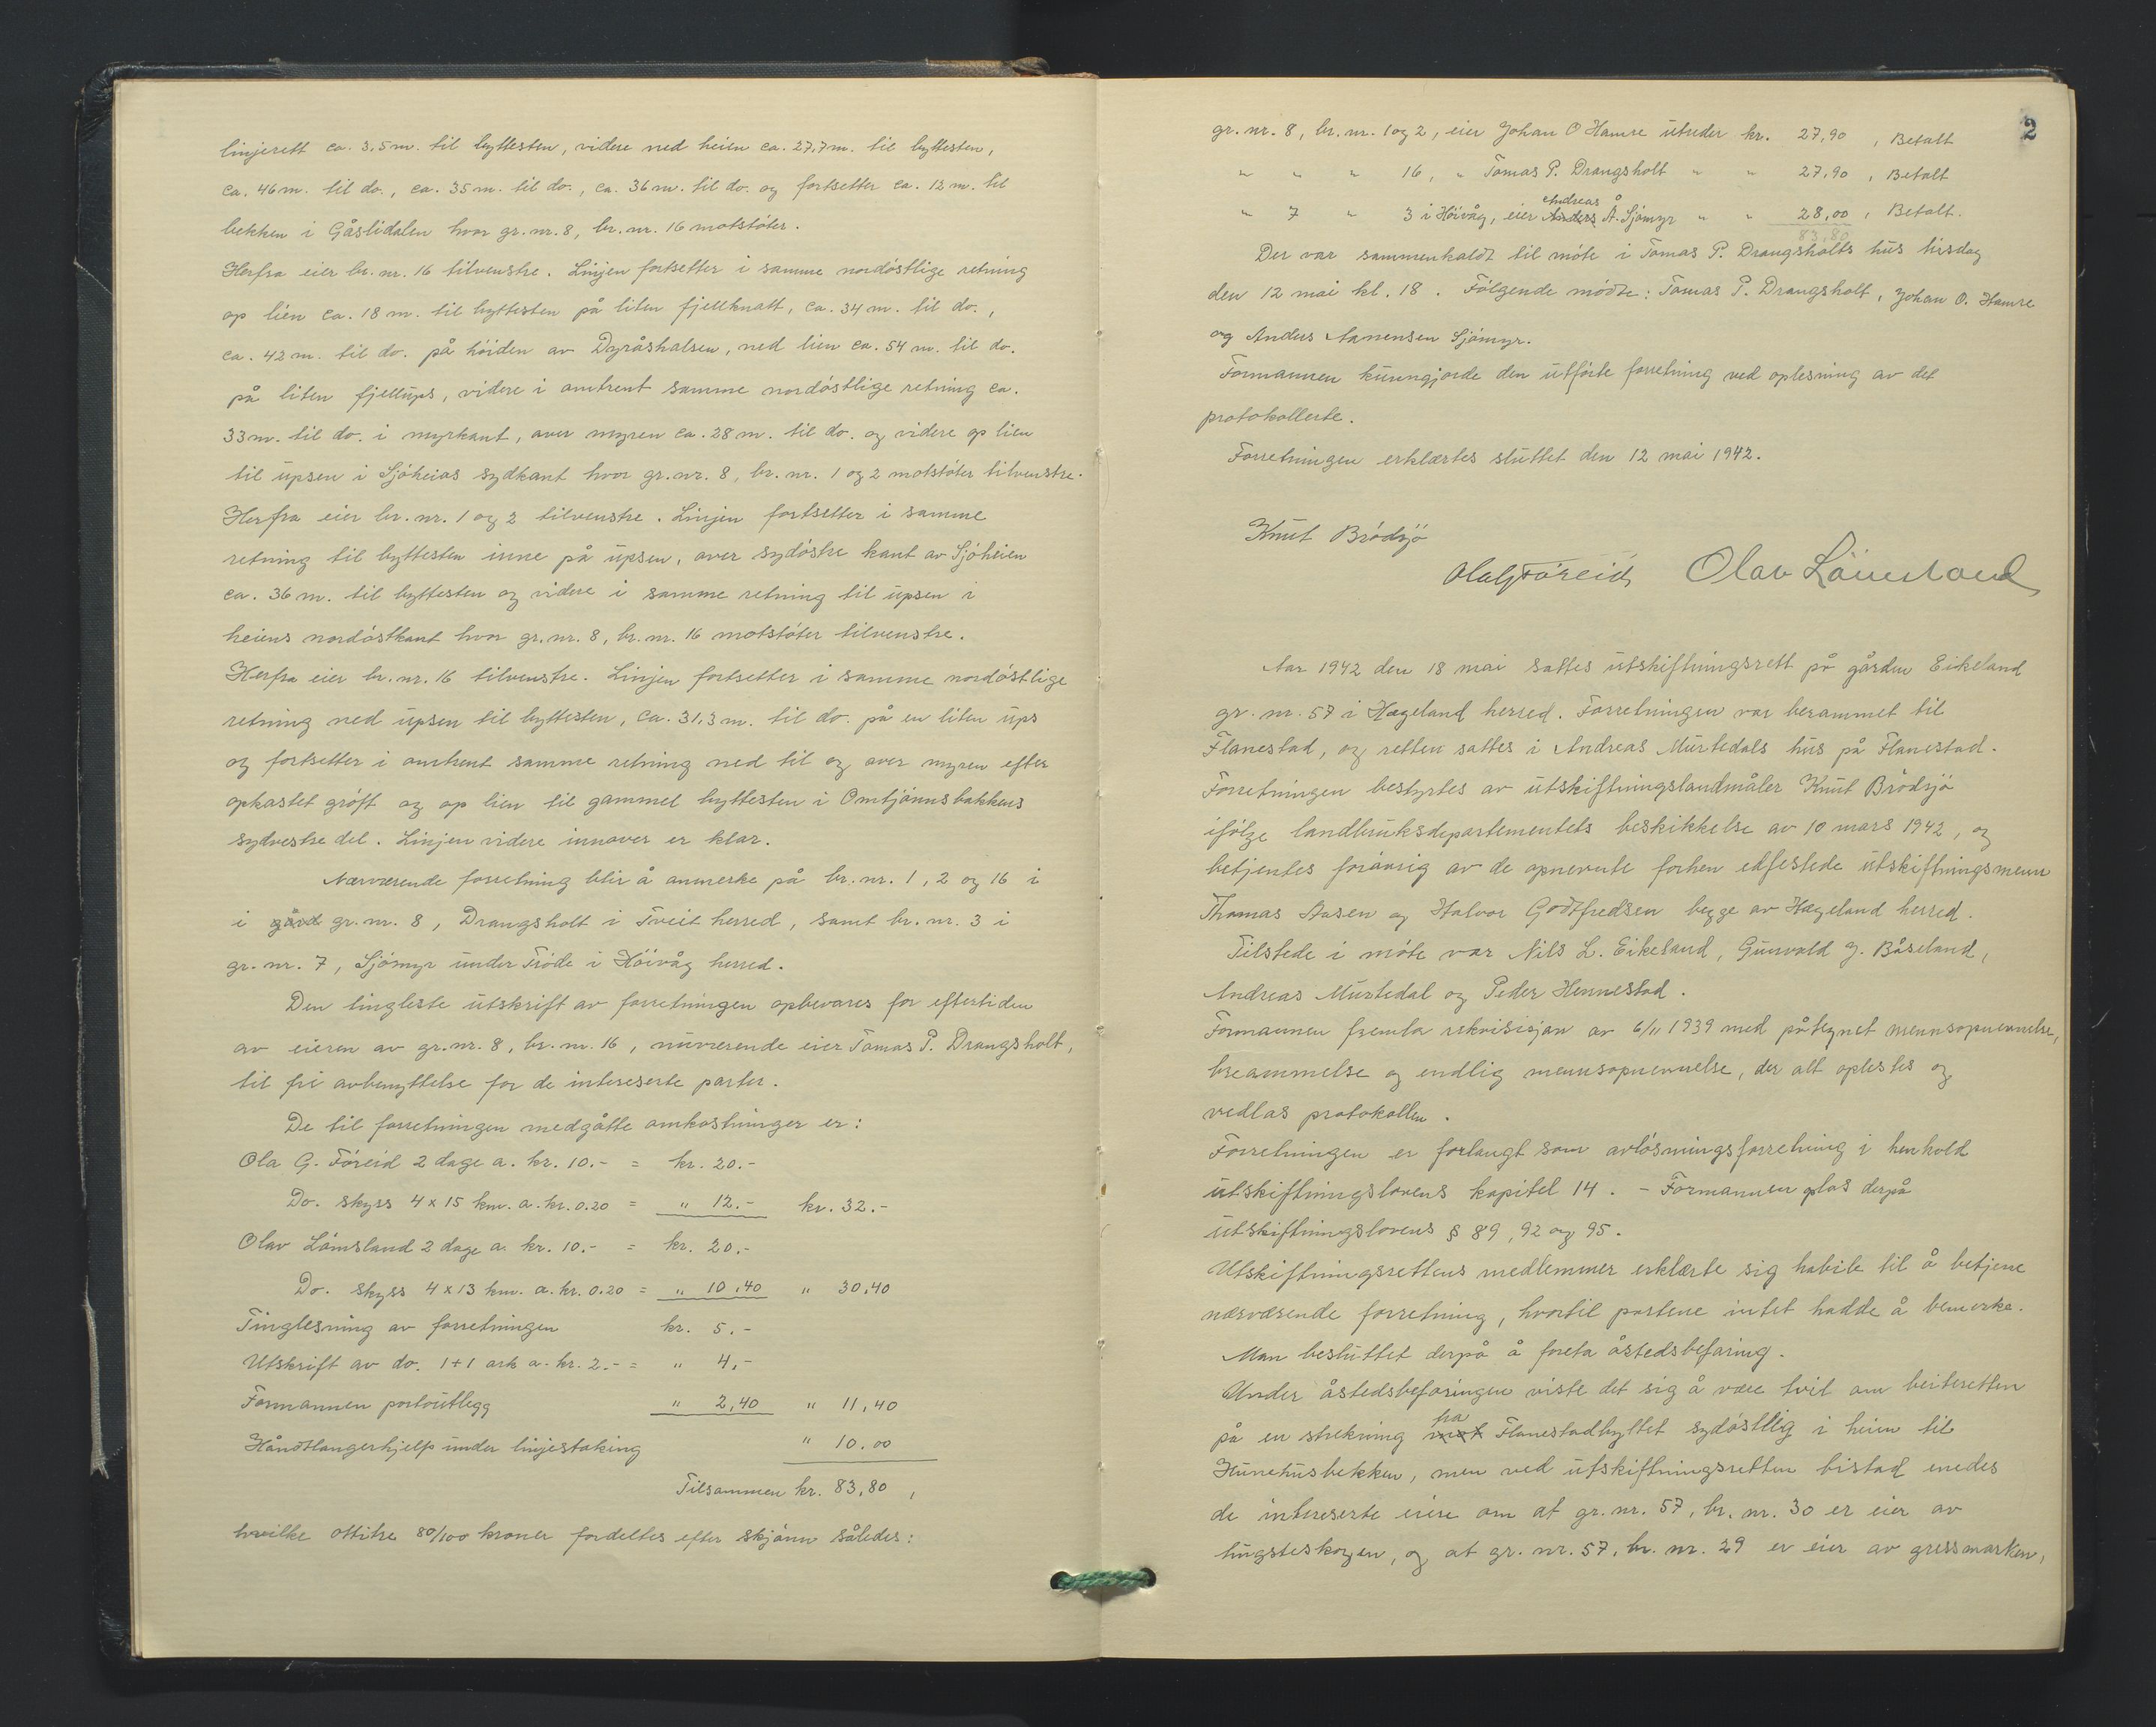 linjerett ca. 3,5 m. til byttesten, videre ned heien ca. 27,7 m. til byttesten,
ca. 46 m. til do., ca. 35 m. til do., ca. 36 m. til do. og fortsetter ca. 12 m. til
bekken i Gåslidalen hvor gr. nr. 8, br. nr. 16 motstöter.
Herfra eier br. nr. 16 tilvenstre. Linjen fortsetter i samme nordöstlige retning
op lien ca. 18 m. til byttesten på liten fjellknatt, ca. 34 m. til do.,
ca. 42 m. til do. på höiden av Dyråshalsen, ned lien ca. 54 m. til do.
på liten fjellups, videre i omtrent samme nordöstlige retning ca.
33 m. til do. i myrkant, over myren ca. 28 m. til do. og videre op lien
til upsen i Sjöheias sydkant hvor gr. nr. 8, br. nr. 1 og 2 motstöter tilvenstre.
Herfra eier br. nr. 1 og 2 tilvenstre. Linjen fortsetter i samme
retning til byttesten inne på upsen, over sydöstre kant av Sjöheien
ca. 36 m. til byttesten og videre i samme retning til upsen i
heiens nordöstkant hvor gr. nr. 8, br. nr. 16 motstöter tilvenstre.
Herfra eier br. nr. 16 tilvenstre. Linjen fortsetter i samme nordöstlige
retning ned upsen til byttesten, ca. 31,3 m. til do. på en liten ups
og fortsetter i omtrent samme retning ned til og over myren efter
opkastet gröft og op lien til gammel byttesten i Omtjönnsbakkens
sydvestre del. Linjen videre innover er klar.
Nærværende forretning blir å anmerke på br. nr. 1, 2 og 16 i
i gård gr. nr. 8, Drangsholt i Tveit herred, samt br. nr. 3 i
gr. nr. 7, Sjömyr under Tröde i Höivåg herred.
Den tingleste utskrift av forretningen opbevares for eftertiden
av eieren av gr. nr. 8, br. nr. 16, nuværende eier Tomas P. Drangsholt,
til fri avbenyttelse for de intereserte parter.
De til forretningen medgåtte omkostninger er:
Ola G. Föreid 2 dage a. kr. 10.- = kr. 20.-
Do. skyss 4 x 15 km. a. kr. 0.20 = " 12.- kr. 32.-
Olav Lömsland 2 dage a. kr. 10.- = kr. 20.-
Do. skyss 4 x 13 km. a. kr. 0.20 = " 10,40 " 30,40
Tinglesning av forretningen kr. 5.-
Utskrift av do. 1+1 ark a. kr. 2.- = " 4.-
Formannen portoutlegg " 2,40 " 11,40
Håndtlangerhjelp under linjestaking " 10.00
Tilsammen kr. 83,80,
hvilke ottitre 80/100 kroner fordeltes efter skjönn således:
2
gr. nr. 8, br. nr. 1 og 2, eier Johan O Hamre utreder kr. 27,90, Betalt
" " " 16, " Tomas P. Drangsholt " " 27,90, Betalt
" 7 " 3 i Höivåg, eier Anders Andreas A. Sjömyr " " 28,00, Betalt.
83,80
Der var sammenkaldt til möte i Tomas P. Drangsholts hus tirsdag
den 12 mai kl. 18. Fölgende mödte: Tomas P. Drangsholt, Johan O. Hamre
og Anders Aanensen Sjömyr.
Formannen kunngjorde den utförte forretning ved oplesning av det
protokollerte.
Forretningen erklærtes sluttet den 12 mai 1942.
Knut Brödsjö
Ola G Föreid Olav Lömsland
Aar 1942 den 18 mai sattes utskiftningsrett på gården Eikeland
gr. nr. 57 i Hægeland herred. Forretningen var berammet til
Flanestad, og retten sattes i Andreas Murtedals hus på Flanestad.
Forretningen bestyrtes av utskiftningslandmåler Knut Brödsjö
ifölge landbruksdepartementets beskikkelse av 10 mars 1942, og
betjentes forövrig av de opnevnte forhen edfestede utskiftningsmenn
Thomas Aasen og Halvor Godtfredsen begge av Hægeland herred.
Tilstede i möte var Nils L. Eikeland, Gunvald J. Båseland,
Andreas Murtedal og Peder Hennestad.
Formannen fremla rekvisisjon av 6/11 1939 med påtegnet mennsopnevnelse,
breammelse og endlig mennsopnevnelse, der alt oplestes og
vedlas protokollen.
Forretningen er forlangt som avlösningsforretning i henhold
utskiftningslovens kapitel 14. - Formannen oplas derpå
utskiftningslovens § 89, 92 og 95.
Utskiftningsrettens medlemmer erklærte sig habile til å betjene
nærværende forretning, hvortil partene intet hadde å bemerke.
Man besluttet derpå å foreta åstedsbefaring.
Under åstedsbefaringen viste det sig å være tvil om beiteretten
på en strekning mot fra Flanestadbyttet sydöstlig i heien til
Hunehusbekken, men ved utskiftningsretten bistad enedes
de intereserte eiere om at gr. nr. 57, br. nr. 30 er eier av
hugsteskogen, og at gr. nr. 57, br. nr. 29 er eier av gressmarken,